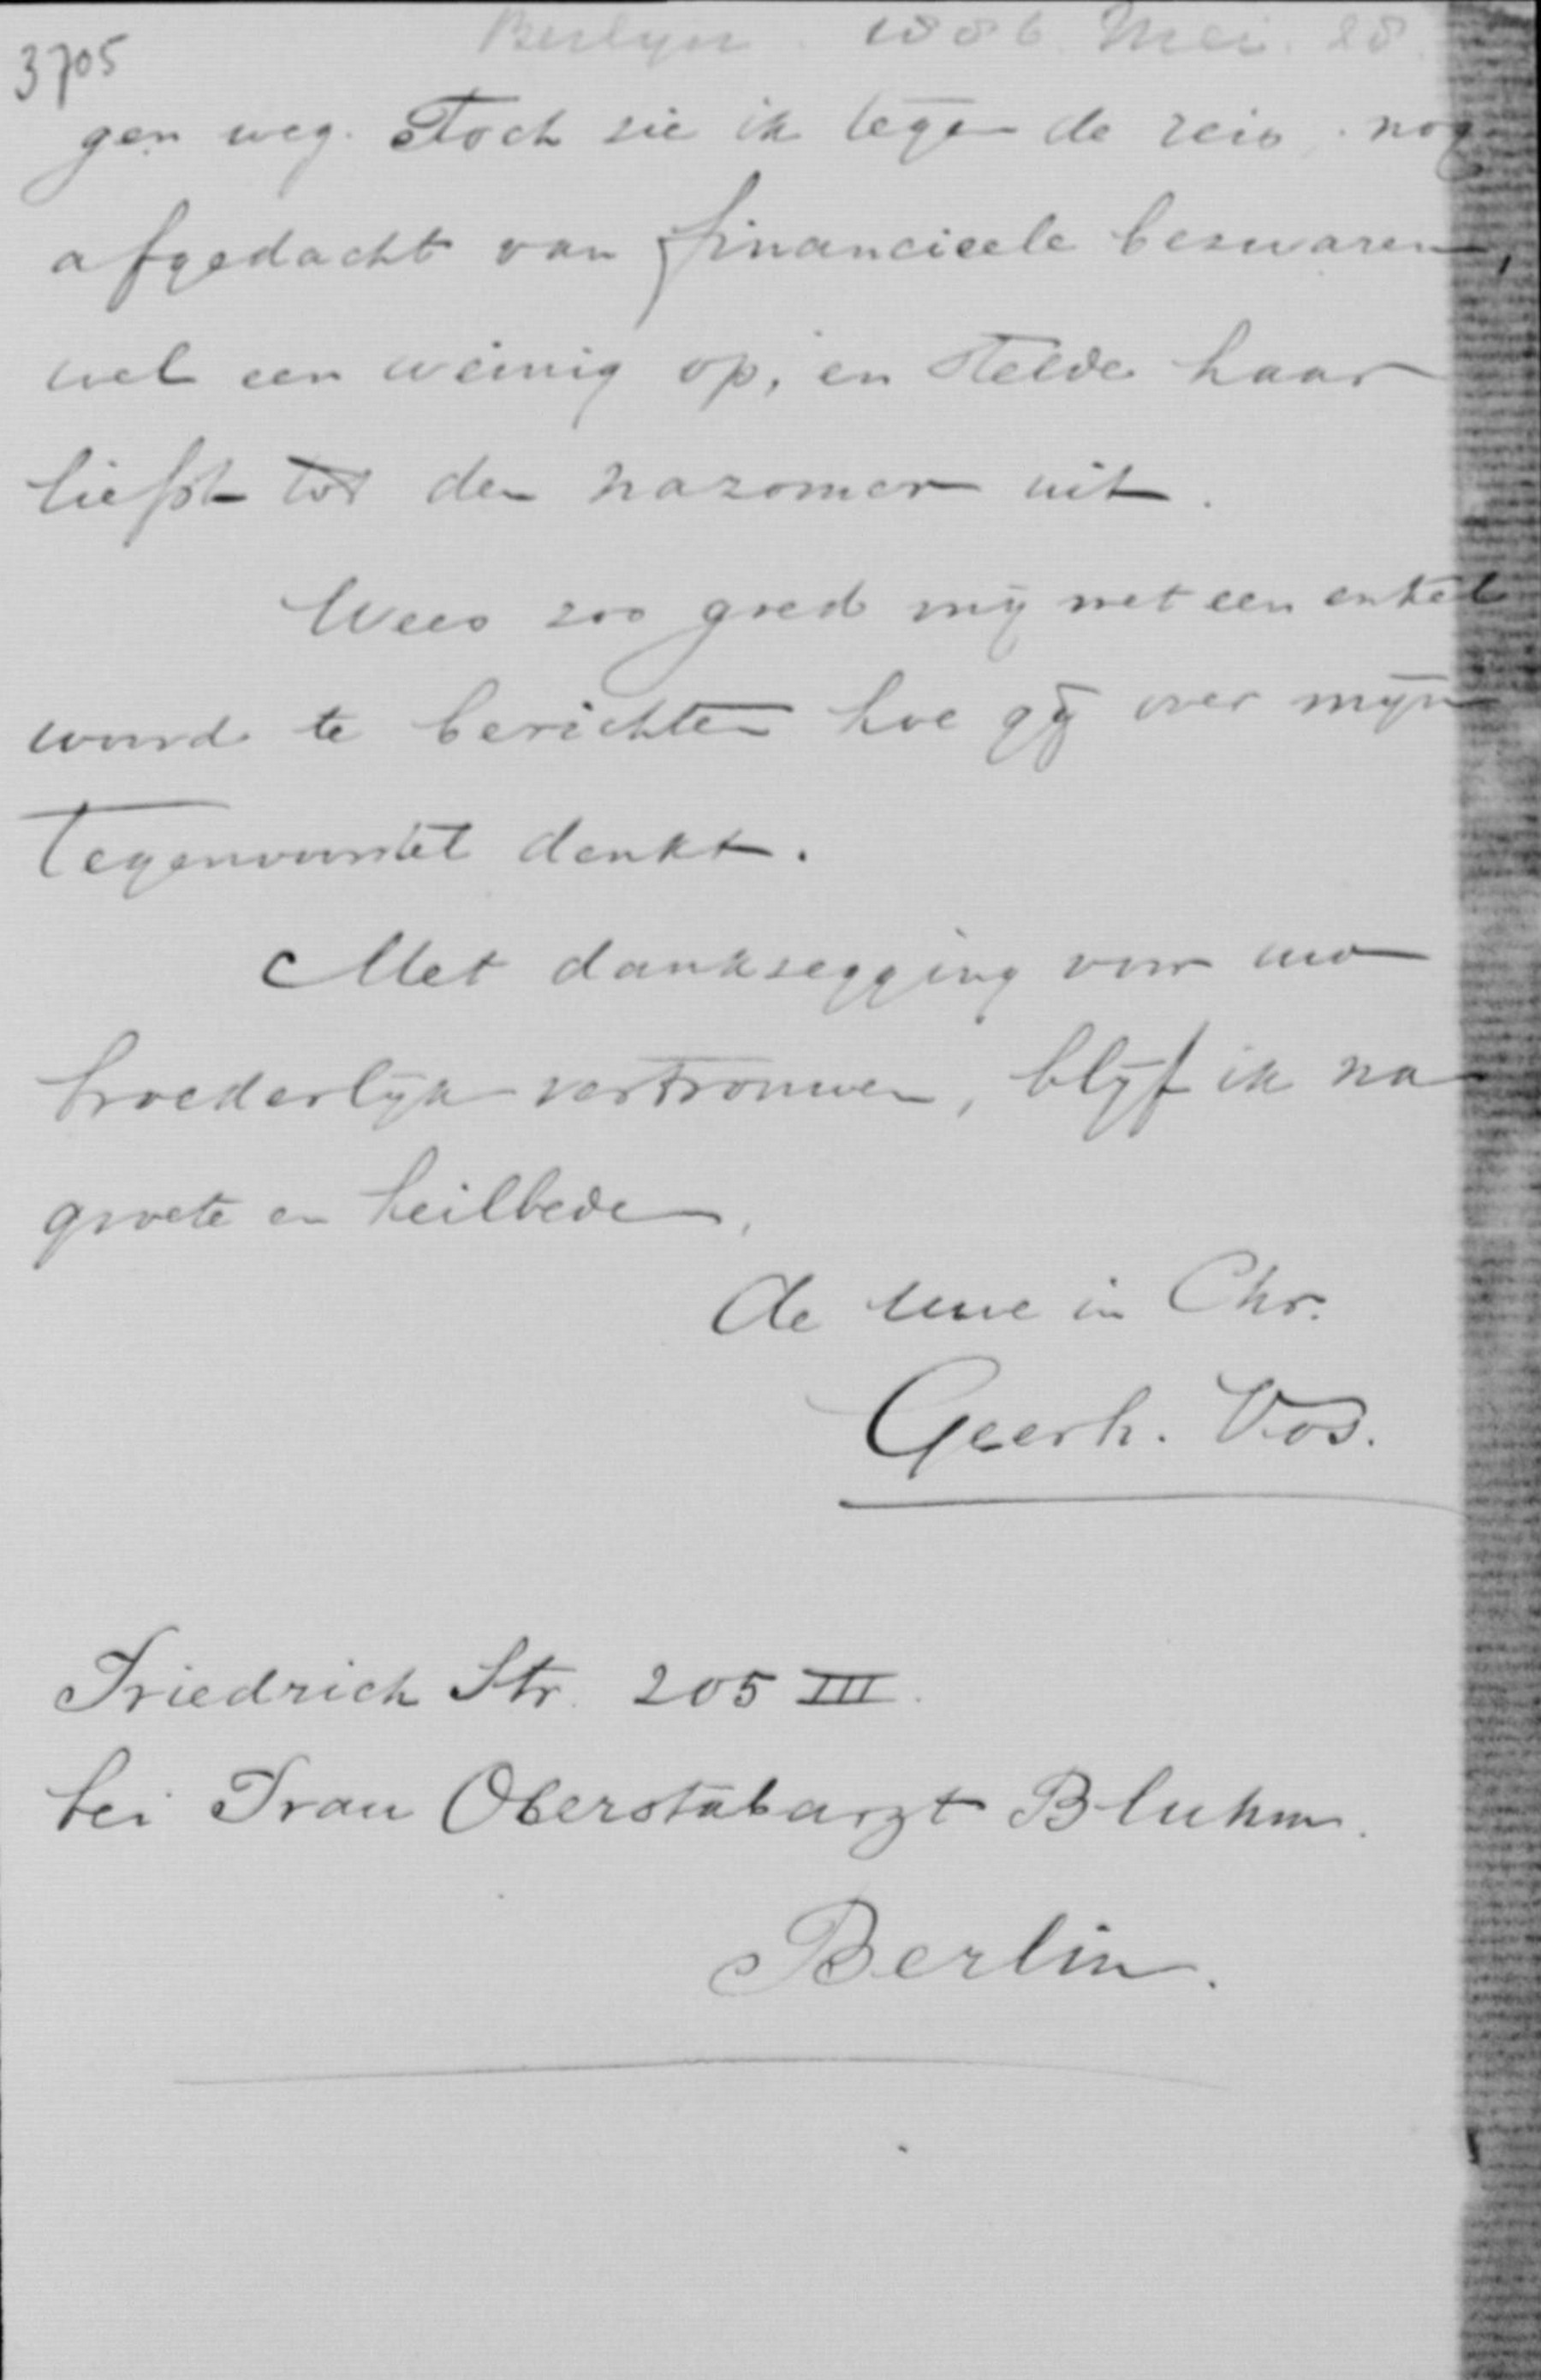 Berlijn. 1886. Mei. 28.
3705
gen weg. Toch zie ik tegen de reis, nog
afgedacht van financieele bezwaren,
wel een weinig op, en stelde haar
liefst tot den nazomer uit.
Wees zoo goed mij met een enkel
woord te berichten hoe gij over mijn
tegenvoorstel denkt.
Met dankzegging voor uw
broederlijk vertrouwen, blijf ik na
groete en heilbede,
de Uwe in Chr.
Geerh. Vos.
Friedrich Str. 205 III.
bei Frau Oberstabarzt Bluhm.
Berlin.